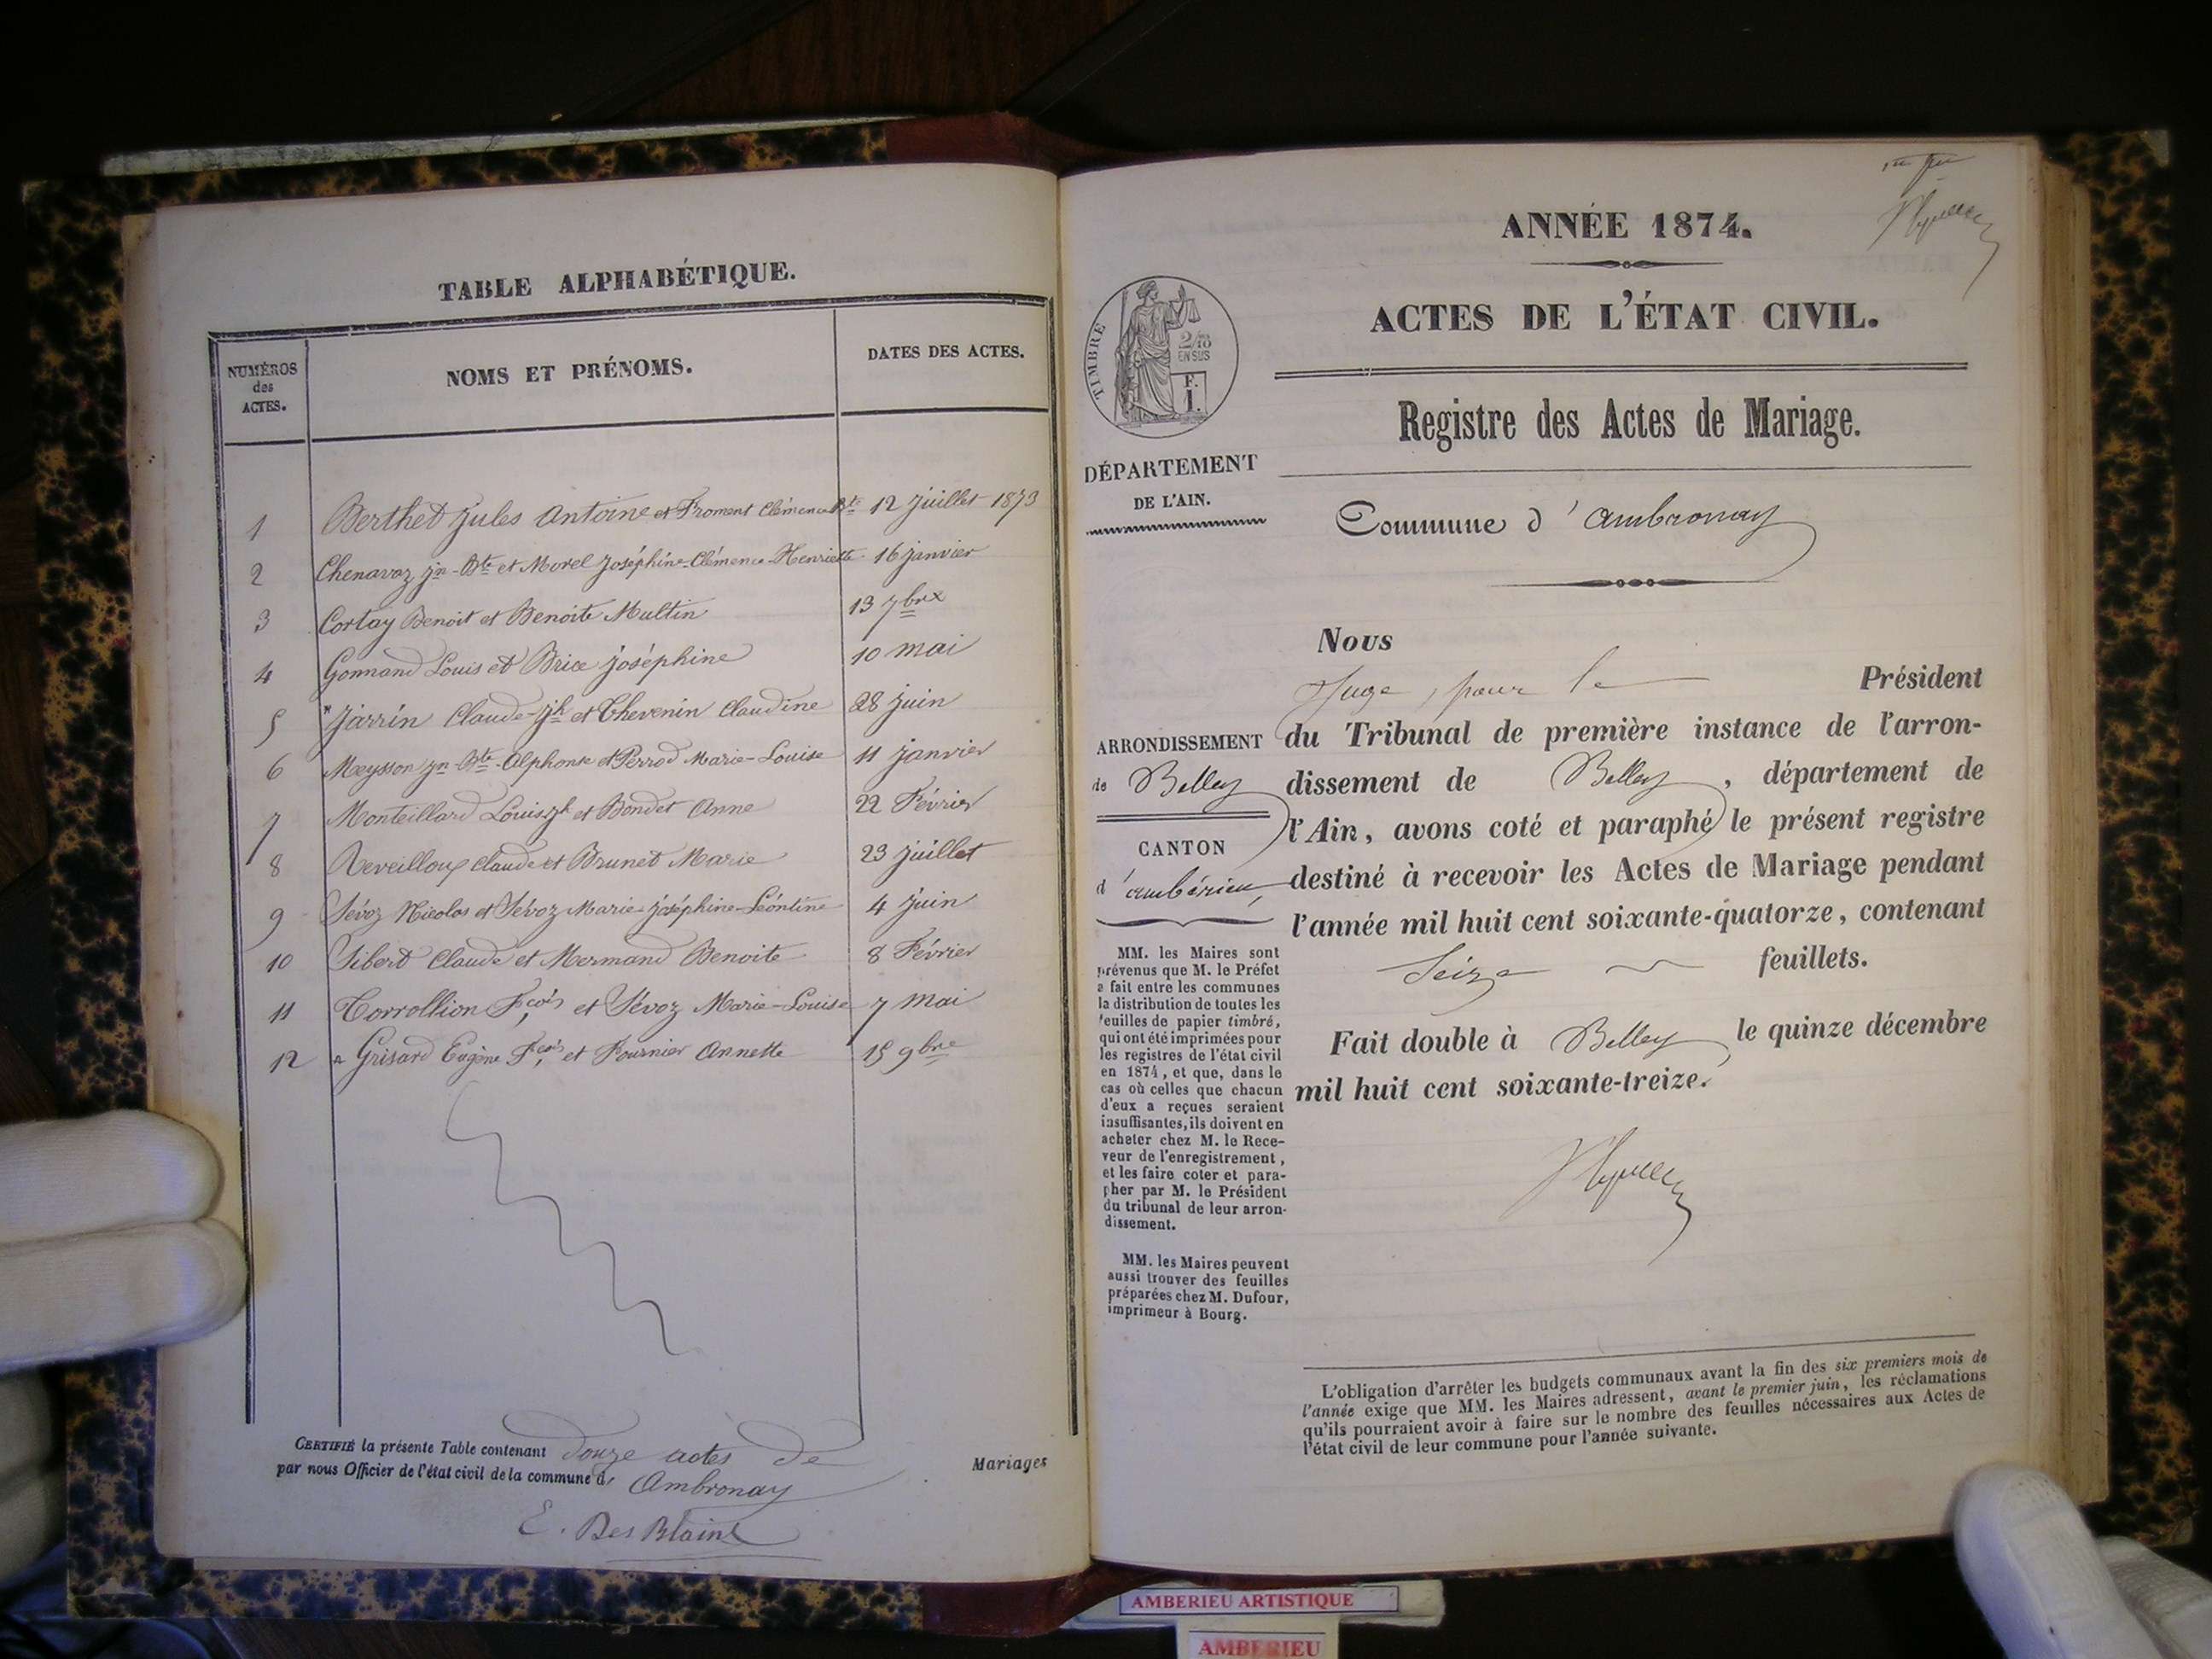 TABLE ALPHABÉTIQUE.
NUMÉROS des ACTES. NOMS ET PRÉNOMS. DATES DES ACTES.
1 Berthet Jules Antoine et Froment Clémence Bte 12 Juillet 1873
2 Chenavaz Jn-Bte et Morel Joséphine-Clémence-Henriette 16 janvier
3 Cortay Benoit et Benoite Multin 13 7bre
4 Gonnand Louis et Brice Joséphine 10 mai
5 Jarrin Claude-Jh et Chevenin Claudine 28 juin
6 Meysson Jn-Bte-Alphonse et Perrod Marie-Louise 11 janvier
7 Monteillard Louis Jh et Bondet Anne 22 Février
8 Reveilloux Claude et Brunet Marie 23 juillet
9 Sévoz Nicolas et Sévoz Marie-Joséphine-Léontine 4 juin
10 Sibert Claude et Mermand Benoite 8 Février
11 Torrollion Fçois et Sévoz Marie-Louise 7 Mai
12 Grisard Eugène Fçois et Fournier Annette 15 9bre
CERTIFIÉ la présente Table contenant douze actes de Mariages
par nous Officier de l'état civil de la commune d' Ambronay
E. Des Blains
ANNÉE 1874.
ACTES DE L'ÉTAT CIVIL.
TIMBRE
2/10
EN SUS
F.
1.
Registre des Actes de Mariage.
DÉPARTEMENT
DE L'AIN.
Commune d'Ambronay
Nous
Juge, pour le Président
du Tribunal de première instance de l'arron-
dissement de Belley, département de
l'Ain, avons coté et paraphé le présent registre
destiné à recevoir les Actes de Mariage pendant
l'année mil huit cent soixante-quatorze, contenant
Seize feuillets.
Fait double à Belley le quinze décembre
mil huit cent soixante-treize.
ARRONDISSEMENT
de Belley
CANTON
d'ambérieu,
MM. les Maires sont
prévenus que M. le Préfet
a fait entre les communes
la distribution de toutes les
feuilles de papier timbré,
qui ont été imprimées pour
les registres de l'état civil
en 1874, et que, dans le
cas où celles que chacun
d'eux a reçues seraient
insuffisantes, ils doivent en
acheter chez M. le Rece-
veur de l'enregistrement,
et les faire coter et para-
pher par M. le Président
du tribunal de leur arron-
dissement.
MM. les Maires peuvent
aussi trouver des feuilles
préparées chez M. Dufour,
imprimeur à Bourg.
L'obligation d'arrêter les budgets communaux avant la fin des six premiers mois de
l'année exige que MM. les Maires adressent, avant le premier juin, les réclamations
qu'ils pourraient avoir à faire sur le nombre des feuilles nécessaires aux Actes de
l'état civil de leur commune pour l'année suivante.
AMBERIEU ARTISTIQUE
AMBERIEU